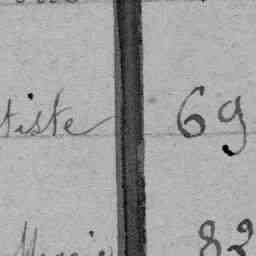 tiste 69
82